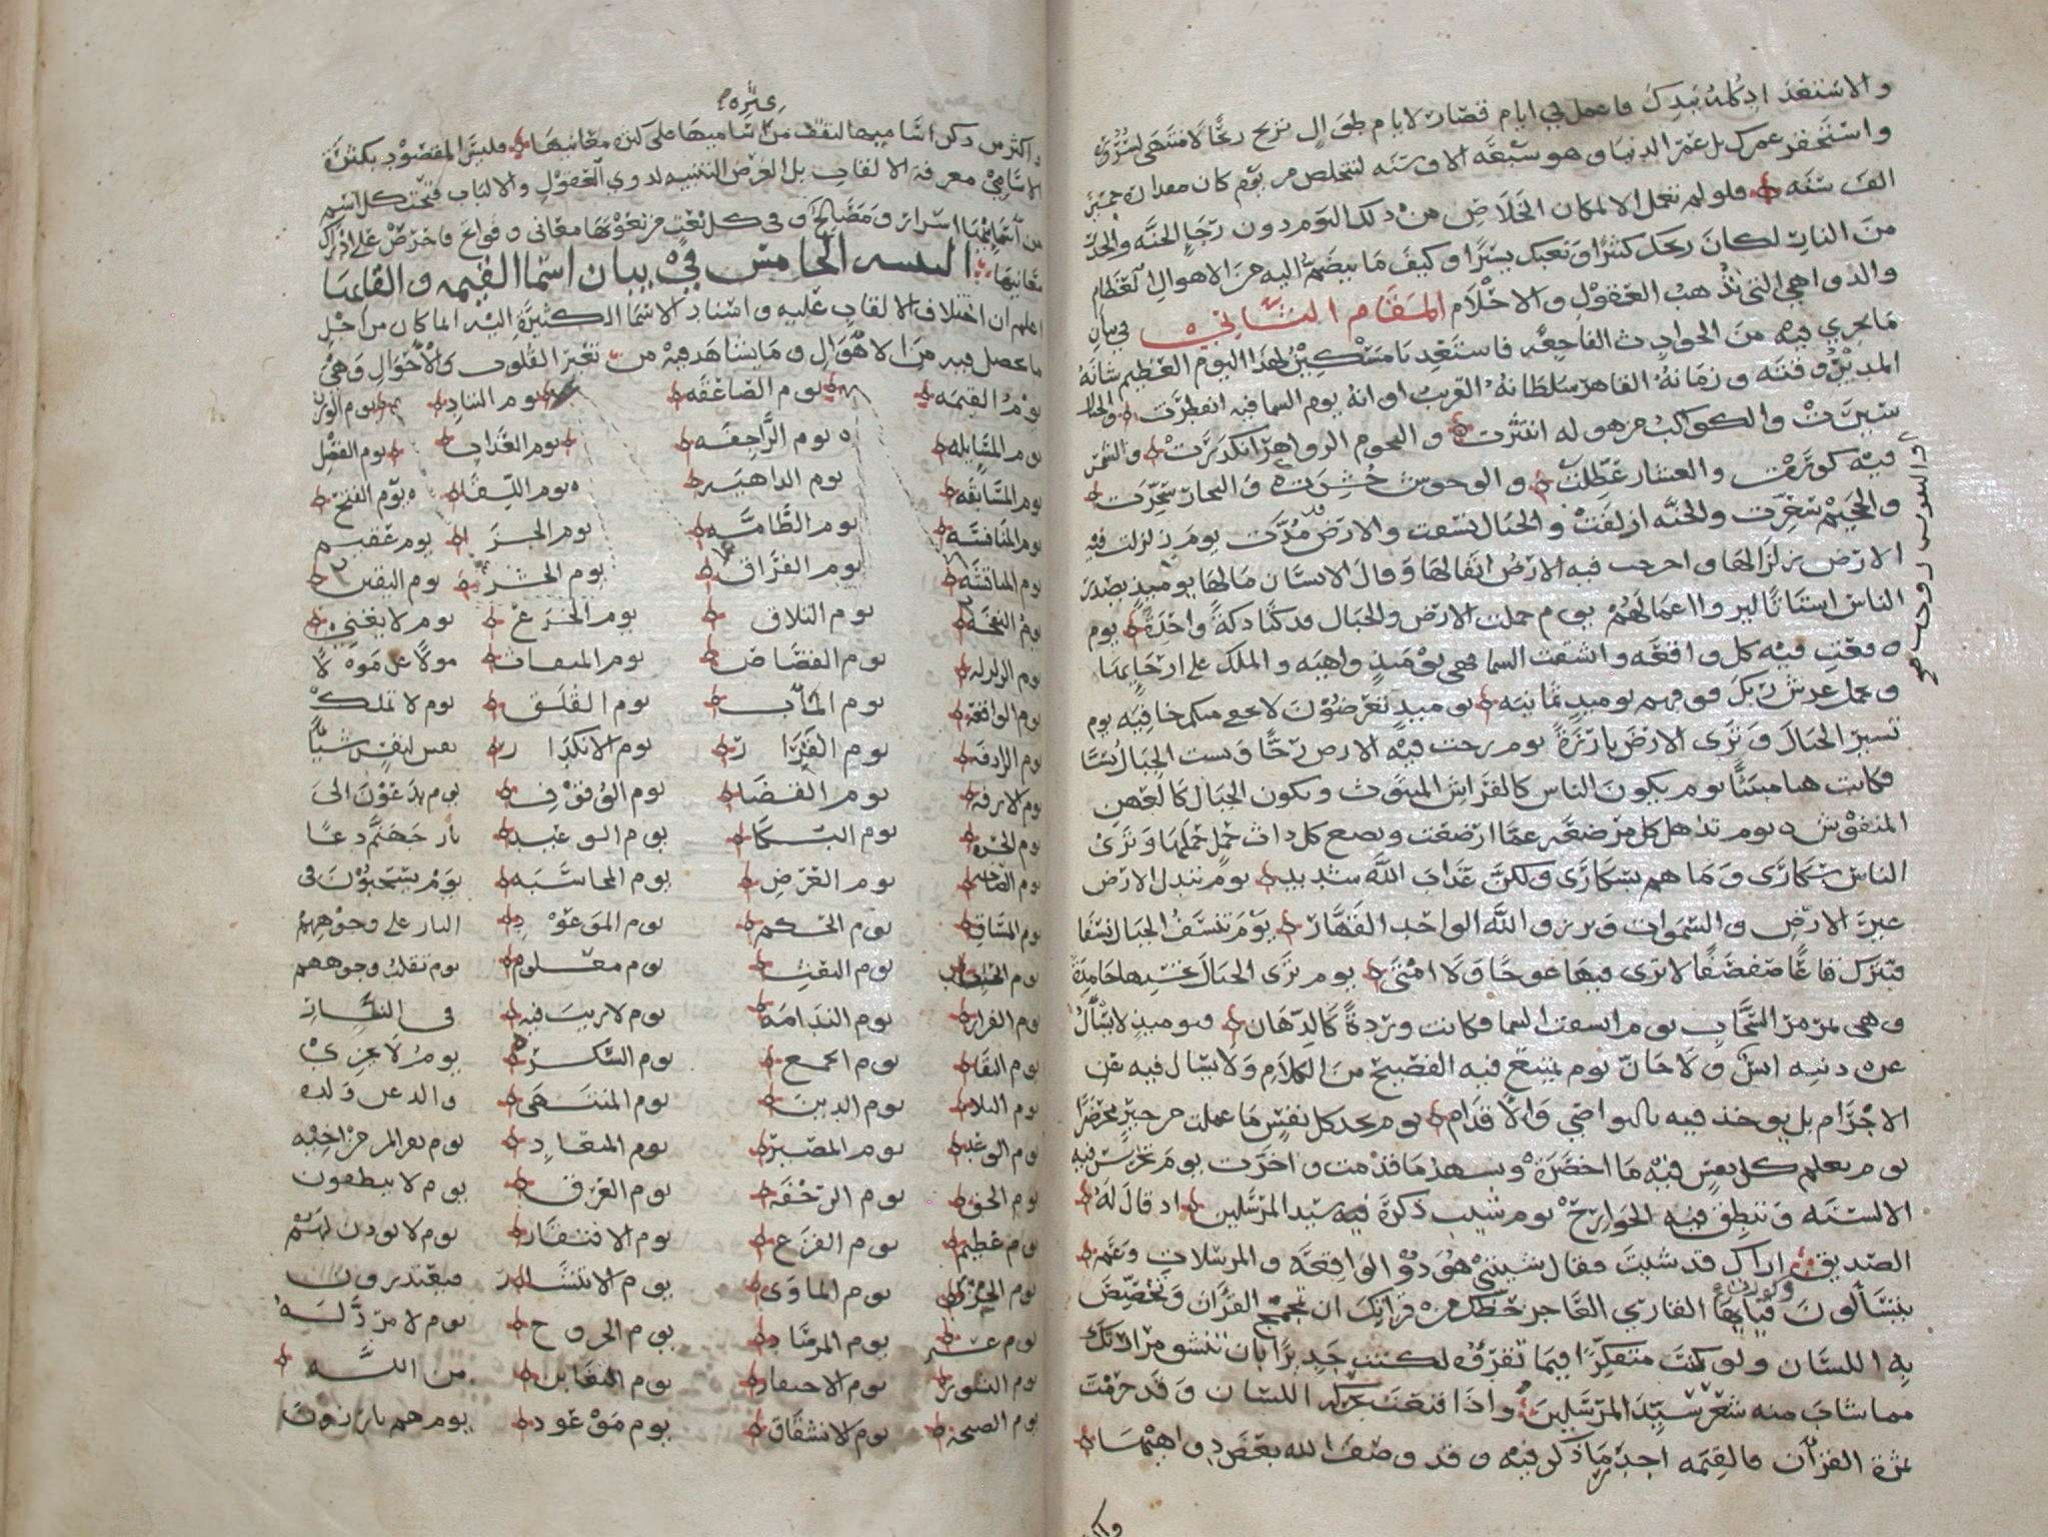 والاستعداد له بيدك فاعمل في ايام قصار لايام طوال تربح ربحا لا منتهى لسروره
واستحقر عمرك بل عمر الدنيا وهو سبعة الاف سنه لتتخلص من يوم كان مقداره خمسين
الف سنه فلو لم تعمل الا لمكان الخلاص من ذلك اليوم دون رجا الجنه والحذر
من النار لكان ربحك كثيرا وتعبك يسيرا وكيف ما ينضم اليه من الاهوال العظام
والدواهي التي تذهب العقول والاحلام المقام الثاني في بيان
ما يجري فيه من الحوادث الفاجعه فاستعد يا مسكين لهذا اليوم العظيم شانه
المديد وقته وزمانه القاهر سلطانه القريب اوانه يوم السما فيه انفطرت والجبال
سيرت والكواكب من هوله انتثرت والنجوم الزواهر انكدرت والشمس
فيه كورت والعشار عطلت والوحوش حشرت والبحار سجرت
والنفوس زوجت
والجحيم سعرت والجنه ازلفت والجبال نسفت والارض مدت يوم زلزلت فيه
الارض زلزالها واخرجت فيه الارض اثقالها وقال الانسان مالها يوميذ يصدر
الناس اشتاتا ليروا اعمالهم يوم حملت الارض والجبال فدكتا دكة واحدة يوم
وقعت فيه كل واقعه وانشقت السما فهي يوميذ واهيه والملك على ارجايها
ويحمل عرش ربك فوقهم يوميذ ثمانيه يوميذ تعرضون لا تخفى منكم خافيه يوم
تسير الجبال وترى الارض بارزة يوم رجت فيه الارض رجا وبست الجبال بسا
فكانت هبا منبثا يوم يكون الناس كالفراش المبثوث وتكون الجبال كالعهن
المنفوش يوم تذهل كل مرضعه عما ارضعت وتضع كل ذات حمل حملها وترى
الناس سكارى وما هم بسكارى ولكن عذاب الله شديد يوم تبدل الارض
غير الارض والسموات وبرزوا لله الواحد القهار يوم تنسف الجبال نسفا
فتترك قاعا صفصفا لا ترى فيها عوجا ولا امتى يوم ترى الجبال تحسبها جامدة
وهي تمر مر السحاب يوم انشقت السما فكانت وردة كالدهان فيوميذ لا يسال
عن ذنبه انس ولا جان يوم يمنع فيه الفصيح من الكلام ولا يسال فيه عن
الاجرام بل يوخذ فيه بالنواصي والاقدام يوم تجد كل نفس ما عملت من خير محضرا
يوم تعلم كل نفس فيه ما احضرت وتشهد ما قدمت واخرت يوم تخرس فيه
الالسنه وتنطق فيه الجوارح يوم شيب ذكره فيه سيد المرسلين اذ قال له
الصديق اراك قد شبت فقال شيبتني هود والواقعه والمرسلات وعم
يتسالون فيا ايها القاري العاجز حظك من قراتك ان تمجمج القران وتخضخض
به اللسان ولو كنت متفكرا فيما تقرؤه لكنت جديرا بان تنشق مرارتك
مما شاب منه شعر سيد المرسلين واذا قنعت بحركة اللسان وقد حرمت
ثمرة القران فالقيمه احد ما ذكر فيه وقد وصف الله بعض دواهيها
واكثر من ذكر اساميها لتقف من اساميها على كثرة معانيها فليس المقصود بكثرة
الاسامي معرفة الالقاب بل الغرض التنبيه لذوي العقول والالباب فتحت كل اسم
من اسمايها اسرار ومصالح وفي كل نعت من نعوتها معاني وفوايح فاحرص على ادراك
معانيها البسه الخامس في بيان اسما القيمه والقابها
اعلم ان اختلاف الالقاب عليه واسناد الاسما الكثيرة اليه انما كان من اجل
ما يحصل فيه من الاهوال وما يشاهد فيه من تغير القلوب والاحوال وهي
يوم القيمه يوم الصاعقه يوم التناد يوم الوزن
يوم المسايله يوم الراجفه يوم العذاب يوم الفصل
يوم المسابقه يوم الداهيه يوم اللقا يوم الفتح
يوم المنافسه يوم الطامه يوم الجزا يوم عقيم
يوم المناقشه يوم الفراق يوم الحشر يوم اليقين
يوم النفخه يوم التلاق يوم الجزع يوم لا يغني
يوم الزلزله يوم القصاص يوم الميقات مولا عن مولا
يوم الواقعه يوم الماب يوم القلق يوم لا تملك
يوم الرادفه يوم القرار يوم الانكدار نفس لنفس شيا
يوم الازفه يوم القضا يوم الوقوف يوم يدعون الى
يوم الحسره يوم البكا يوم الوعيد نار جهنم دعا
يوم الصاخه يوم العرض يوم المحاسبه يوم يسحبون في
يوم المساق يوم الحكم يوم الموعود النار على وجوههم
يوم الحساب يوم البعث يوم معلوم يوم تقلب وجوههم
يوم الفرار يوم الندامه يوم لا ريب فيه في النار
يوم البقا يوم الجمع يوم السكر يوم لا يجزي
يوم البلا يوم الدين يوم المنتهى والد عن ولده
يوم الوعيد يوم المصير يوم الميعاد يوم يفر المر من اخيه
يوم الحق يوم الرجفه يوم العرق يوم لا ينطقون
يوم عظيم يوم الفزع يوم الافتقار يوم لا يوذن لهم
يوم الخزي يوم الماوى يوم الانتشار فيعتذرون
يوم عسير يوم المرصاد يوم الخروج يوم لا مرد له
يوم النشور يوم التغابن من الله
يوم الصيحه يوم الانشقاق يوم موعود يوم هم بارزون